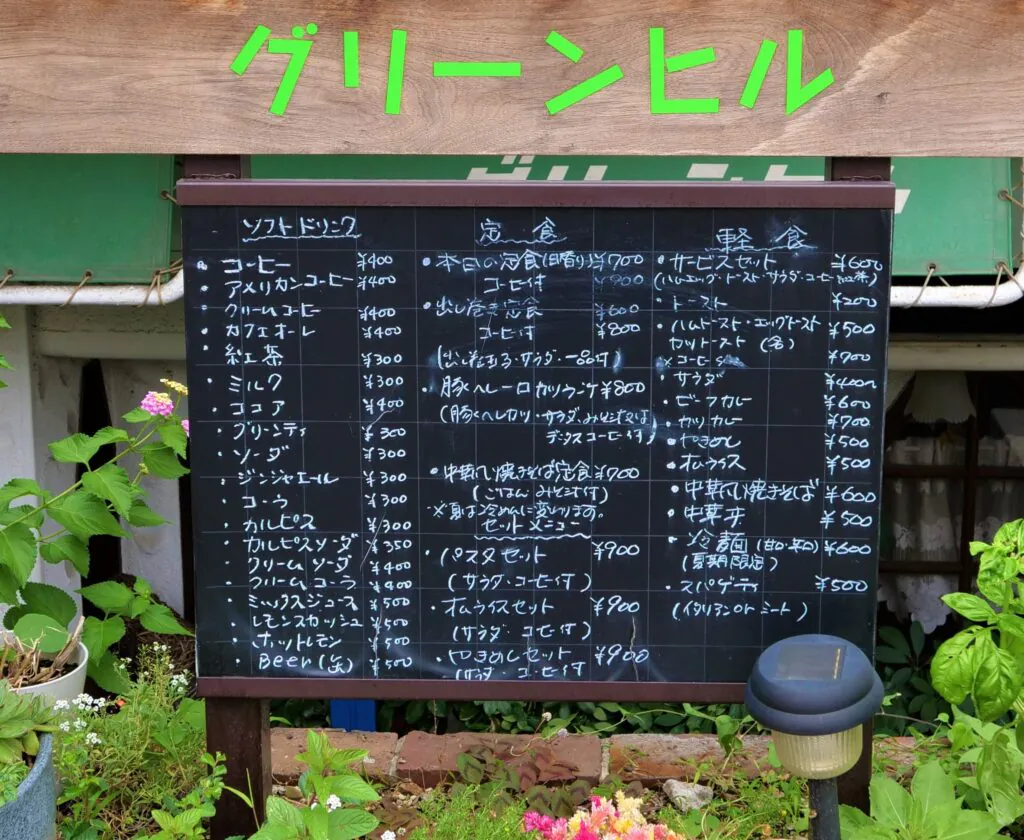 グリーンヒル
ソフトドリンク
・コーヒー ¥400
・アメリカンコーヒー ¥400
・クリームコーヒー ¥400
・カフェオーレ ¥400
・紅茶 ¥300
・ミルク ¥300
・ココア ¥400
・グリーンティ ¥300
・ソーダ ¥300
・ジンジャエール ¥300
・コーラ ¥300
・カルピス ¥300
・カルピスソーダ ¥350
・クリームソーダ ¥400
・クリームコーラ ¥400
・ミックスジュース ¥500
・レモンスカッシュ ¥500
・ホットレモン ¥500
・Beer(缶) ¥500
定食
・本日の定食(日替り) ¥700
コーヒー付 ¥900
・出し巻き定食 ¥600
コーヒー付 ¥800
(出し巻き サラダ・一品付)
・豚ヘレ一口カツランチ ¥800
(豚ヘレカツ・サラダ みそ汁
コーヒー付)
・中華风焼きそば定食 ¥700
(ごはん みそ汁付)
※夏は冷めんに変ります。
セットメニュー
・パスタセット ¥900
(サラダ・コーヒー付)
・オムライスセット ¥900
(サラダ・コーヒー付)
・やきめしセット ¥900
(サラダ・コーヒー付)
軽食
・サービスセット ¥600
(ハムエッグ・トースト・サラダ・コーヒー
・トースト ¥200
・ハムトースト・エッグトースト ¥500
¥700
・サラダ ¥400
・ビーフカレー ¥600
・カツカレー ¥700
・やきめし ¥500
・オムライス ¥500
・中華风焼きそば ¥600
・中華丼 ¥500
・冷麺 (甘口・辛口) ¥600
(夏期限定)
・スパゲティ ¥500
(イタリアン or ミート)